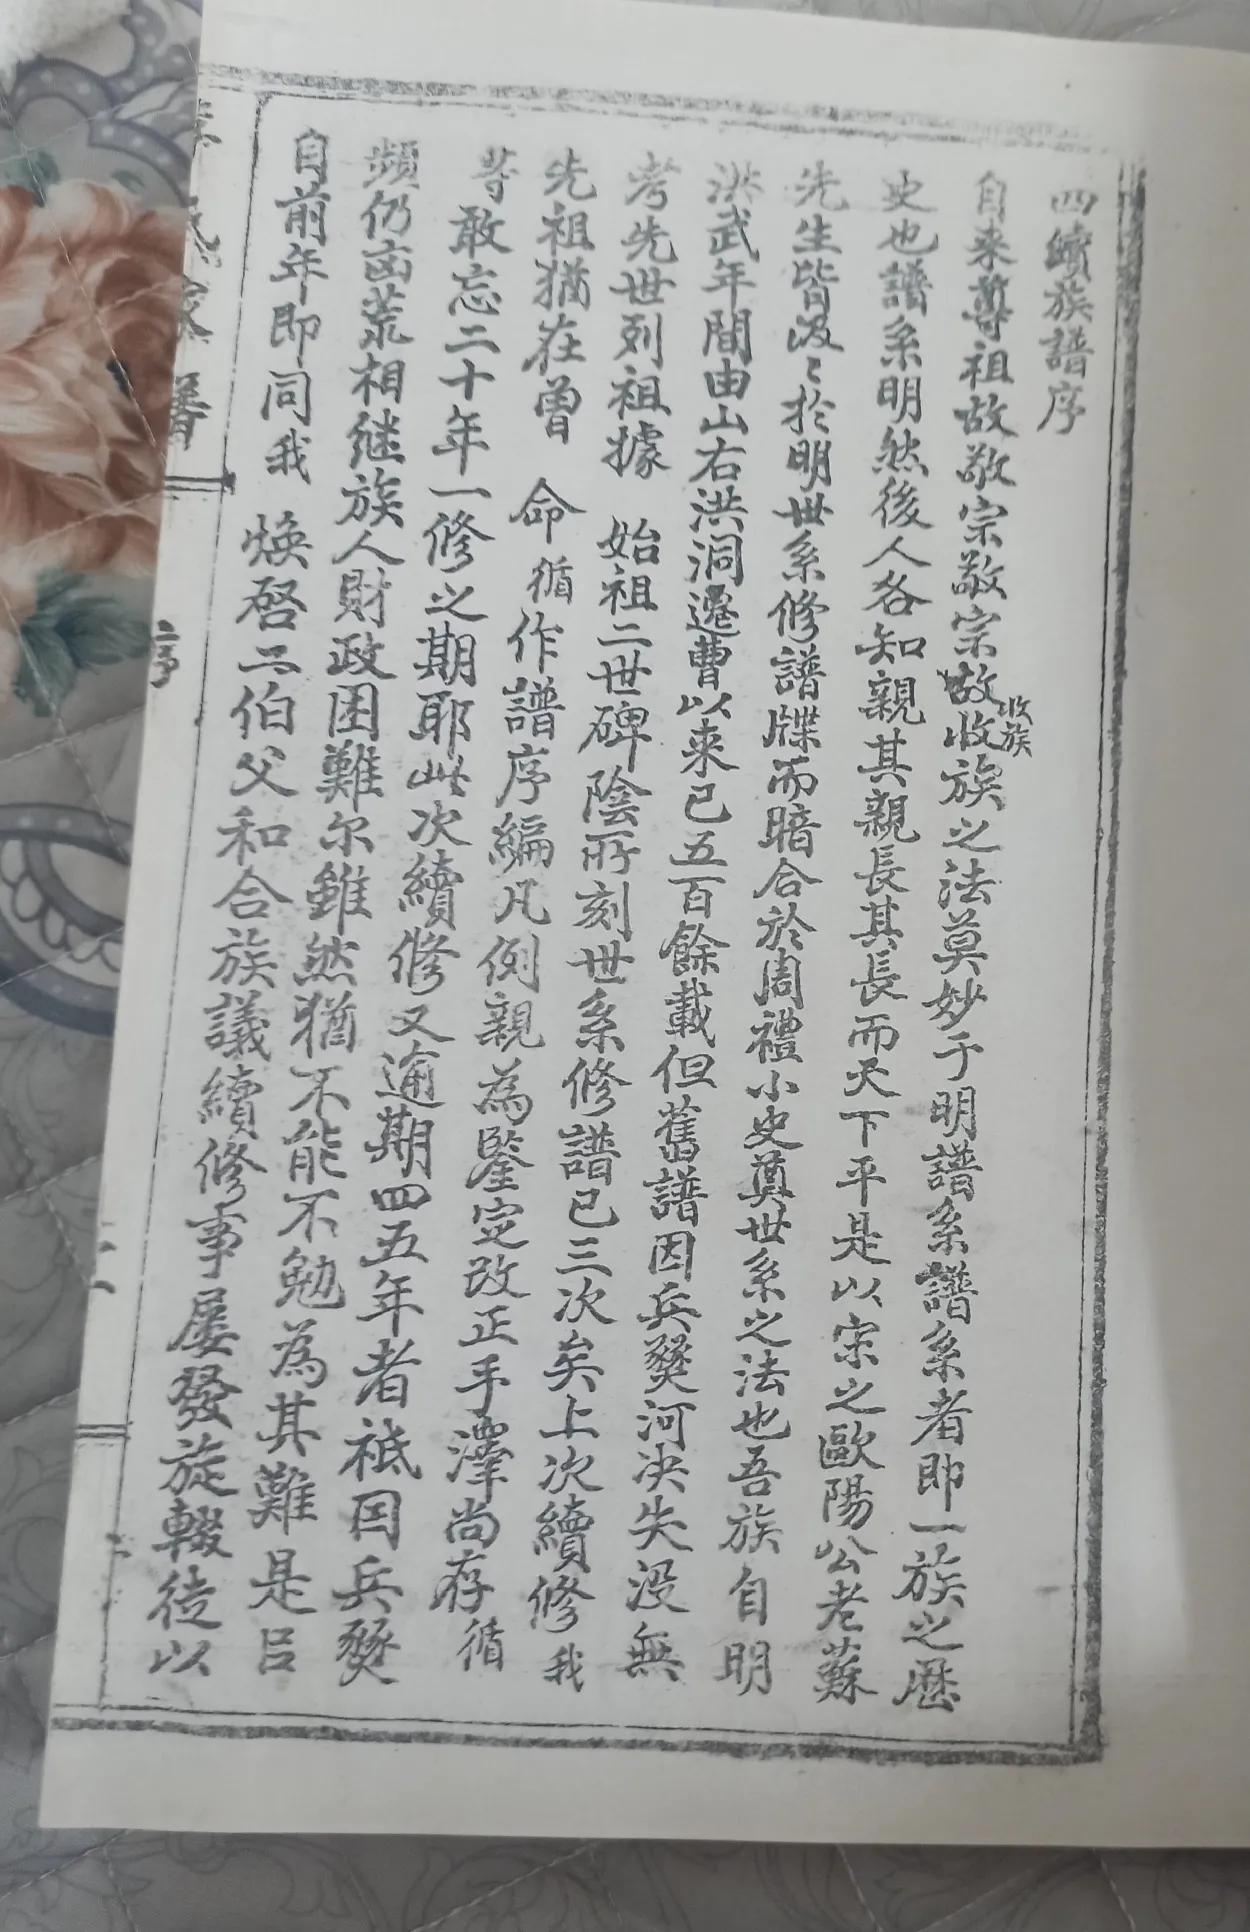 四續族譜序
自来尊祖故敬宗敬宗故收族
收族之法莫妙于明譜系譜系者即一族之歷
史也譜系明然後人各知親其親長其長而天下平是以宋之歐陽公老蘇
先生皆汲〻於明世系修譜牒而暗合於周禮小史奠世系之法也吾族自明
洪武年間由山右洪洞遷曹以来已五百餘載但舊譜因兵燹河决失没無
考先世列祖據 始祖二世碑陰所刻世系修譜已三次矣上次續修我
先祖猶在曾 命循作譜序編凡例親為鑒定改正手澤尚存循
等敢忘二十年一修之期耶此次續修又逾期四五年者祗因兵燹
頻仍凶荒相継族人財政困難尔雖然猶不能不勉為其難是以
自前年即同我 焕啓二伯父和合族議續修事屡發旋輟徒以
氏家譜
序